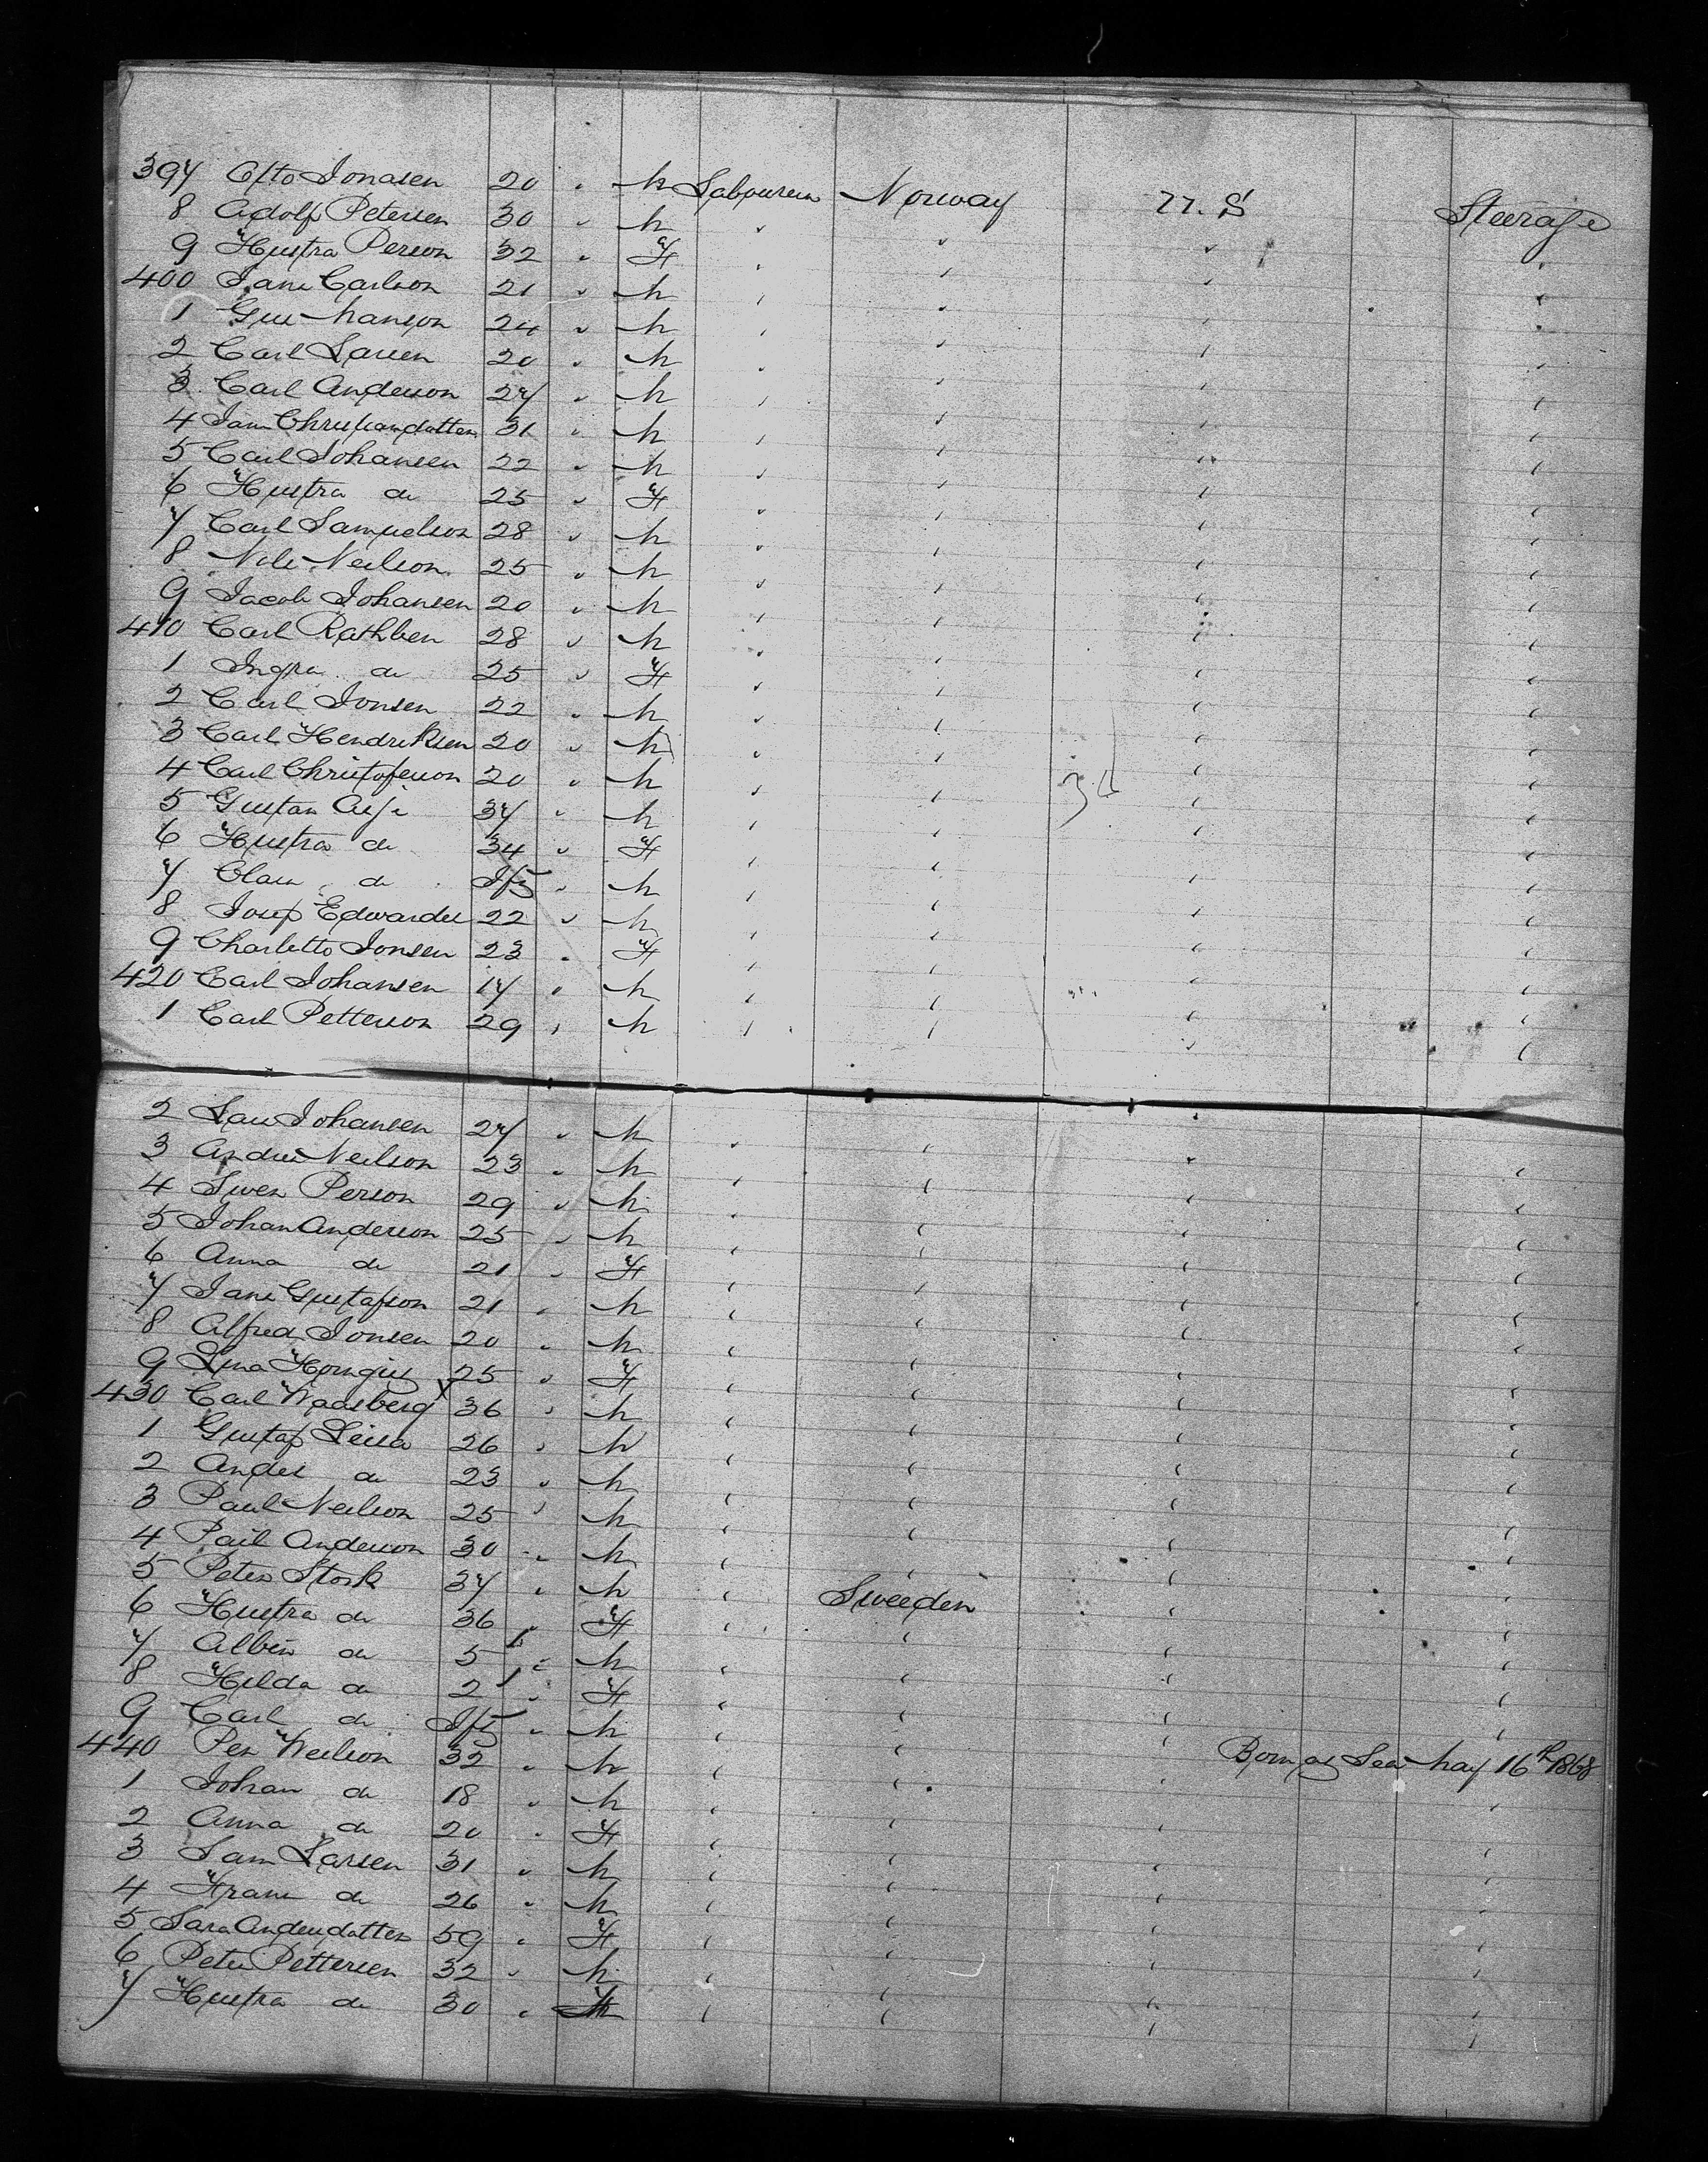 397 Otto Jonasen 20 " M Labourers Norway U.S Steerage
8 Adolf Petersen 30 " M " " " "
9 Hustra Person 32 " F " " " "
400 Jane Carlson 21 " M " " " "
1 Gus Manson 24 " M " " " "
2 Carl Larsen 20 " M " " " "
3 Carl Anderson 27 " M " " " "
4 Jam Christiansdatter 31 " M " " " "
5 Carl Johansen 22 " M " " " "
6 Hustra do 25 " F " " " "
7 Carl Samuelson 28 " M " " " "
8 Nils Neilson 25 " M " " " "
9 Jacob Johansen 20 " M " " " "
410 Carl Rathben 28 " M " " " "
1 Ingra do 25 " F " " " "
2 Carl Jonsen 22 " M " " " "
3 Carl Hendriksen 20 " M " " " "
4 Carl Christoferson 20 " M " " " "
5 Gustan 37 " M " " " "
6 Hustra do 34 " F " " " "
7 Claus do Inft " M " " " "
8 Josep Edwardes 22 " M " " " "
9 Charletto Jonsen 23 " F " " " "
420 Carl Johansen 17 " M " " " "
1 Carl Petterson 29 " M " " " "
2 Lars Johansen 27 " M " " " "
3 Andres Neilson 23 " M " " " "
4 Swen Person 29 " M " " " "
5 Johan Anderson 25 " M " " " "
6 Anna do 21 " F " " " "
7 Jane Gustafson 21 " M " " " "
8 Alfred Jonsen 20 " M " " " "
9 Lina 25 " F " " " "
430 Carl Wadsberg 36 " M " " " "
1 Gustaf Leisa 26 " M " " " "
2 Andes do 23 " M " " " "
3 Paul Neilson 25 " M " " " "
4 Pail Anderson 30 " M " " " "
5 Peter Stork 37 " M " Sweeden " "
6 Hustra do 36 " F " " " "
7 Albin do 5 " M " " " "
8 Hilda do 2 " F " " " "
9 Carl do Inft " M " " " Born at Sea May 16th 1868
440 Per Neilson 32 " M " " " "
1 Johan do 18 " M " " " "
2 Anna do 20 " F " " " "
3 Sam Larsen 31 " M " " " "
4 Frans do 26 " M " " " "
5 Sara Andersdatter 59 " F " " " "
6 Peter Pettersen 32 " M " " " "
7 Hustra do 30 " F " " " "